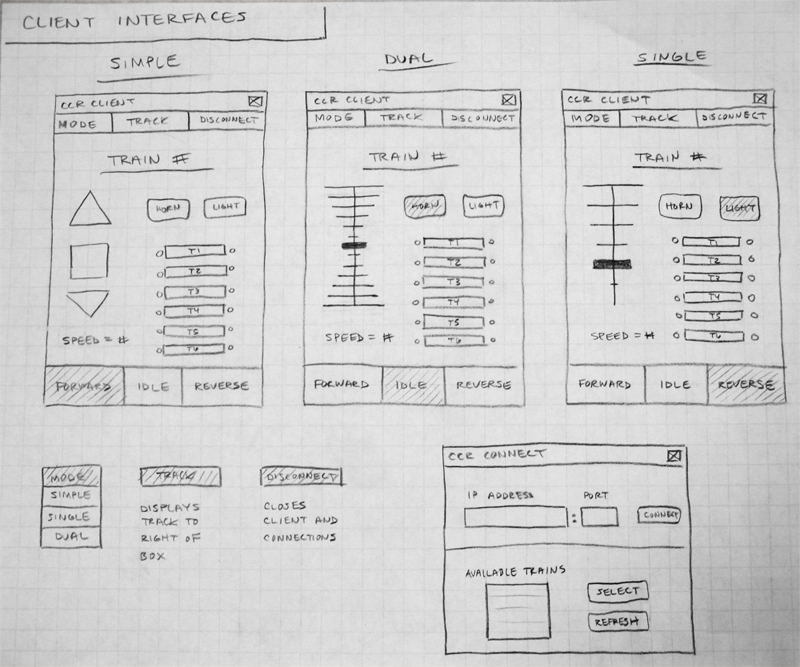 CLIENT INTERFACES
SIMPLE
CCR CLIENT
MODE TRACK DISCONNECT
TRAIN #
HORN LIGHT
T1
T2
T3
T4
T5
T6
SPEED = #
FORWARD IDLE REVERSE
DUAL
CCR CLIENT
MODE TRACK DISCONNECT
TRAIN #
HORN LIGHT
T1
T2
T3
T4
T5
T6
SPEED = #
FORWARD IDLE REVERSE
SINGLE
CCR CLIENT
MODE TRACK DISCONNECT
TRAIN #
HORN LIGHT
T1
T2
T3
T4
T5
T6
SPEED = #
FORWARD IDLE REVERSE
MODE
SIMPLE
SINGLE
DUAL
TRACK
DISPLAYS
TRACK TO
RIGHT OF
BOX
DISCONNECT
CLOSES
CLIENT AND
CONNECTIONS
CCR CONNECT
IP ADDRESS PORT
: CONNECT
AVAILABLE TRAINS
SELECT
REFRESH